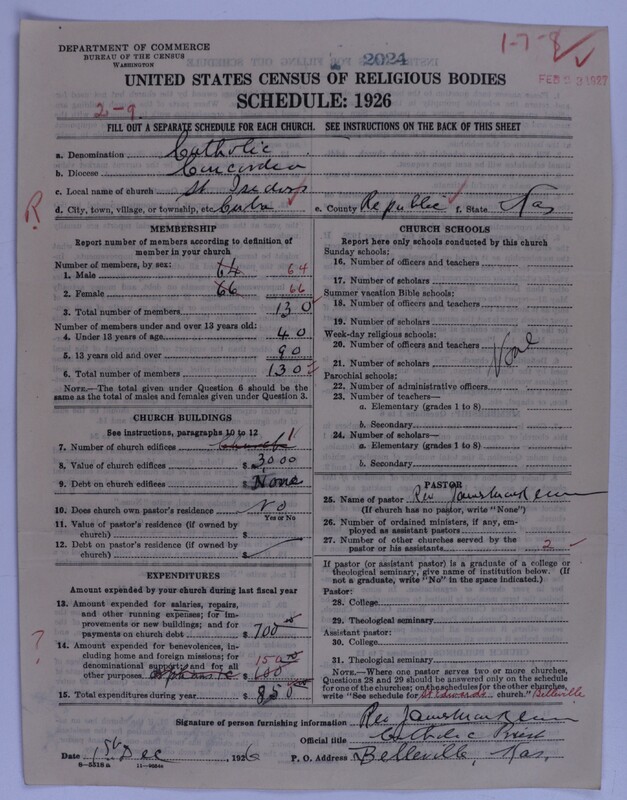 DEPARTMENT OF COMMERCE
BUREAU OF THE CENSUS
WASHINGTON
2024
1-7-8
FEB 23 1927
UNITED STATES CENSUS OF RELIGIOUS BODIES
SCHEDULE: 1926
2-9
FILL OUT A SEPARATE SCHEDULE FOR EACH CHURCH. SEE INSTRUCTIONS ON THE BACK OF THIS SHEET
a. Denomination Catholic
b. Diocese Concordia
c. Local name of church St Isidors
R
d. City, town, village, or township, etc. Cuba e. County Republic f. State Kas
MEMBERSHIP
Report number of members according to definition of
member in your church
Number of members, by sex:
1. Male 64 64
2. Female 66 66
3. Total number of members 130
Number of members under and over 13 years old:
4. Under 13 years of age 40
5. 13 years old and over 90
6. Total number of members 130
NOTE.—The total given under Question 6 should be
same as the total of males and females given under Question 3.
CHURCH BUILDINGS
See instructions, paragraphs 10 to 12
7. Number of church edifices 1
8. Value of church edifices $ 3000
9. Debt on church edifices $ None
10. Does church own pastor's residence No
Yes or No
11. Value of pastor's residence (if owned by
church) $
12. Debt on pastor's residence (if owned by
church) $
EXPENDITURES
Amount expended by your church during last fiscal year
13. Amount expended for salaries, repairs,
and other running expenses; for im-
provements or new buildings; and for
payments on church debt $ 700
?
14. Amount expended for benevolences, in-
cluding home and foreign missions; for
denominational support; and for all
150
other purposes. $
15. Total expenditures during year $ 850
CHURCH SCHOOLS
Report here only schools conducted by this church
Sunday schools:
16. Number of officers and teachers
17. Number of scholars
Summer vacation Bible schools:
18. Number of officers and teachers
19. Number of scholars
Week-day religious schools:
20. Number of officers and teachers
None
21. Number of scholars
Parochial schools:
22. Number of administrative officers
23. Number of teachers—
a. Elementary (grades 1 to 8)
b. Secondary
24. Number of scholars—
a. Elementary (grades 1 to 8)
b. Secondary
PASTOR
25. Name of pastor Rev James
(If church has no pastor, write "None")
26. Number of ordained ministers, if any, em-
ployed as assistant pastors
27. Number of other churches served by the
pastor or his assistants 2
If pastor (or assistant pastor) is a graduate of a college or
theological seminary, give name of institution below. (If
not a graduate, write "No" in the space indicated.)
Pastor:
28. College
29. Theological seminary
Assistant pastor:
30. College
31. Theological seminary
NOTE.—Where one pastor serves two or more churches,
Questions 28 and 29 should be answered only on the schedule
for one of the churches; on the schedules for the other churches,
write "See schedule for St Edwards church." Belleville
Signature of person furnishing information Rev James
Official title Catholic Priest
Date 15th Dec 1926 P. O. Address Belleville, Kas,
8-5318 a